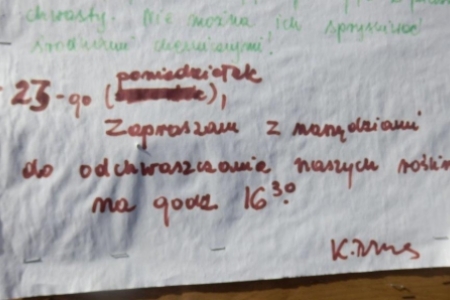 chwasty. Nie można ich spryskiwać
środkami chemicznymi!
poniedziałek
23-go ( ),
Zapraszam z narzędziami
do odchwaszczania naszych roślin
na godz. 16³⁰.